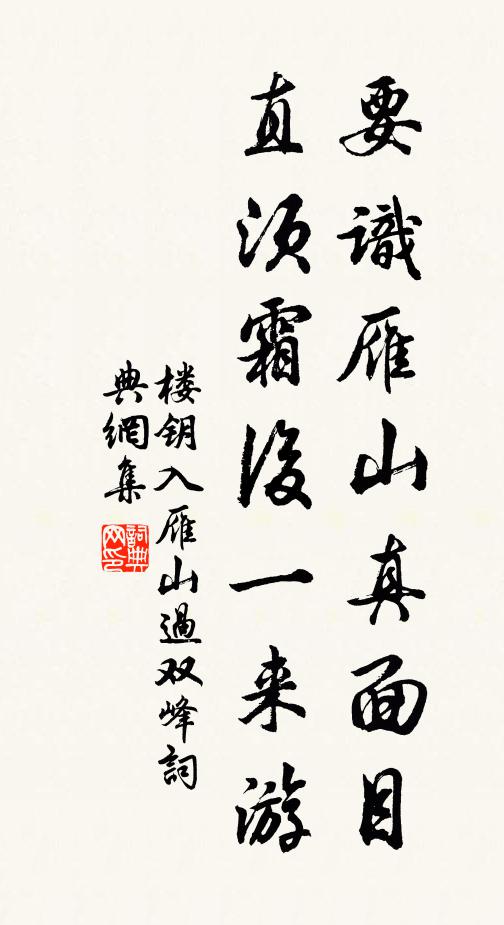 要識雁山真面目
直须霜後一来游
楼钥入雁山過双峰詞
典網集
詞典
网印